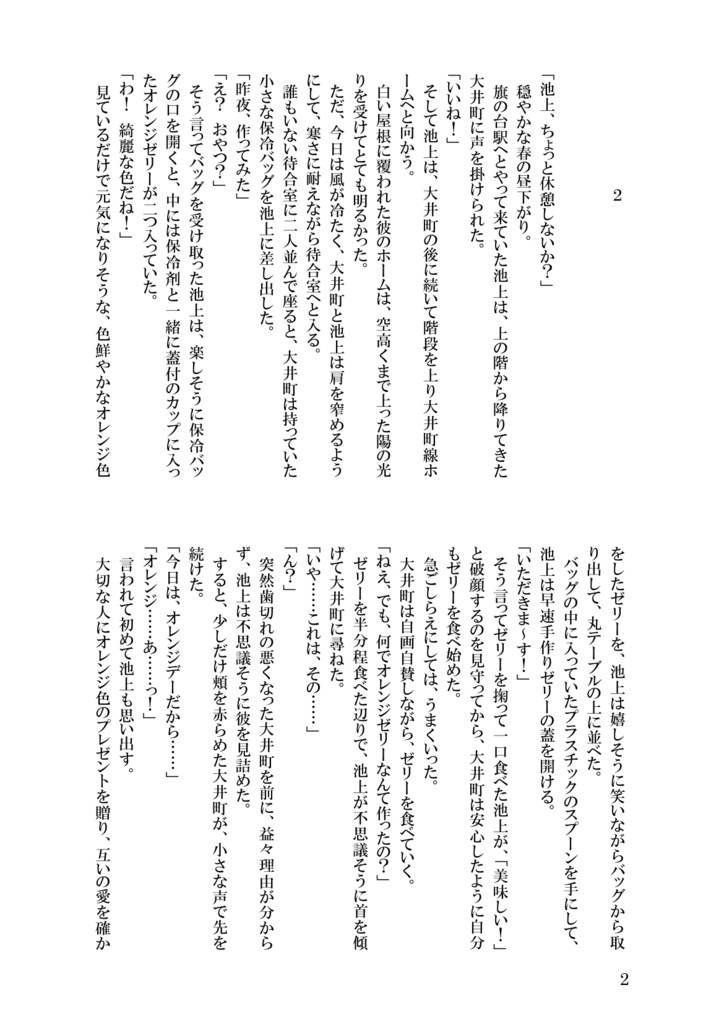 2
「池上、ちょっと休憩しないか？」
穏やかな春の昼下がり。
旗の台駅へとやって来ていた池上は、上の階から降りてきた
大井町に声を掛けられた。
「いいね！」
そして池上は、大井町の後に続いて階段を上り大井町線ホ
ームへと向かう。
白い屋根に覆われた彼のホームは、空高くまで上った陽の光
りを受けてとても明るかった。
ただ、今日は風が冷たく、大井町と池上は肩を窄めるよう
にして、寒さに耐えながら待合室へと入る。
誰もいない待合室に二人並んで座ると、大井町は持っていた
小さな保冷バッグを池上に差し出した。
「昨夜、作ってみた」
「え？　おやつ？」
そう言ってバッグを受け取った池上は、楽しそうに保冷バッ
グの口を開くと、中には保冷剤と一緒に蓋付のカップに入っ
たオレンジゼリーが二つ入っていた。
「わ！　綺麗な色だね！」
見ているだけで元気になりそうな、色鮮やかなオレンジ色
をしたゼリーを、池上は嬉しそうに笑いながらバッグから取
り出して、丸テーブルの上に並べた。
バッグの中に入っていたプラスチックのスプーンを手にして、
池上は早速手作りゼリーの蓋を開ける。
「いただきま～す！」
そう言ってゼリーを掬って一口食べた池上が、「美味しい！」
と破顔するのを見守ってから、大井町は安心したように自分
もゼリーを食べ始めた。
急ごしらえにしては、うまくいった。
大井町は自画自賛しながら、ゼリーを食べていく。
「ねえ、でも、何でオレンジゼリーなんて作ったの？」
ゼリーを半分程食べた辺りで、池上が不思議そうに首を傾
げて大井町に尋ねた。
「いや……これは、その……」
「ん？」
突然歯切れの悪くなった大井町を前に、益々理由が分から
ず、池上は不思議そうに彼を見詰めた。
すると、少しだけ頬を赤らめた大井町が、小さな声で先を
続けた。
「今日は、オレンジデーだから……」
「オレンジ……あ……っ！」
言われて初めて池上も思い出す。
大切な人にオレンジ色のプレゼントを贈り、互いの愛を確か
2